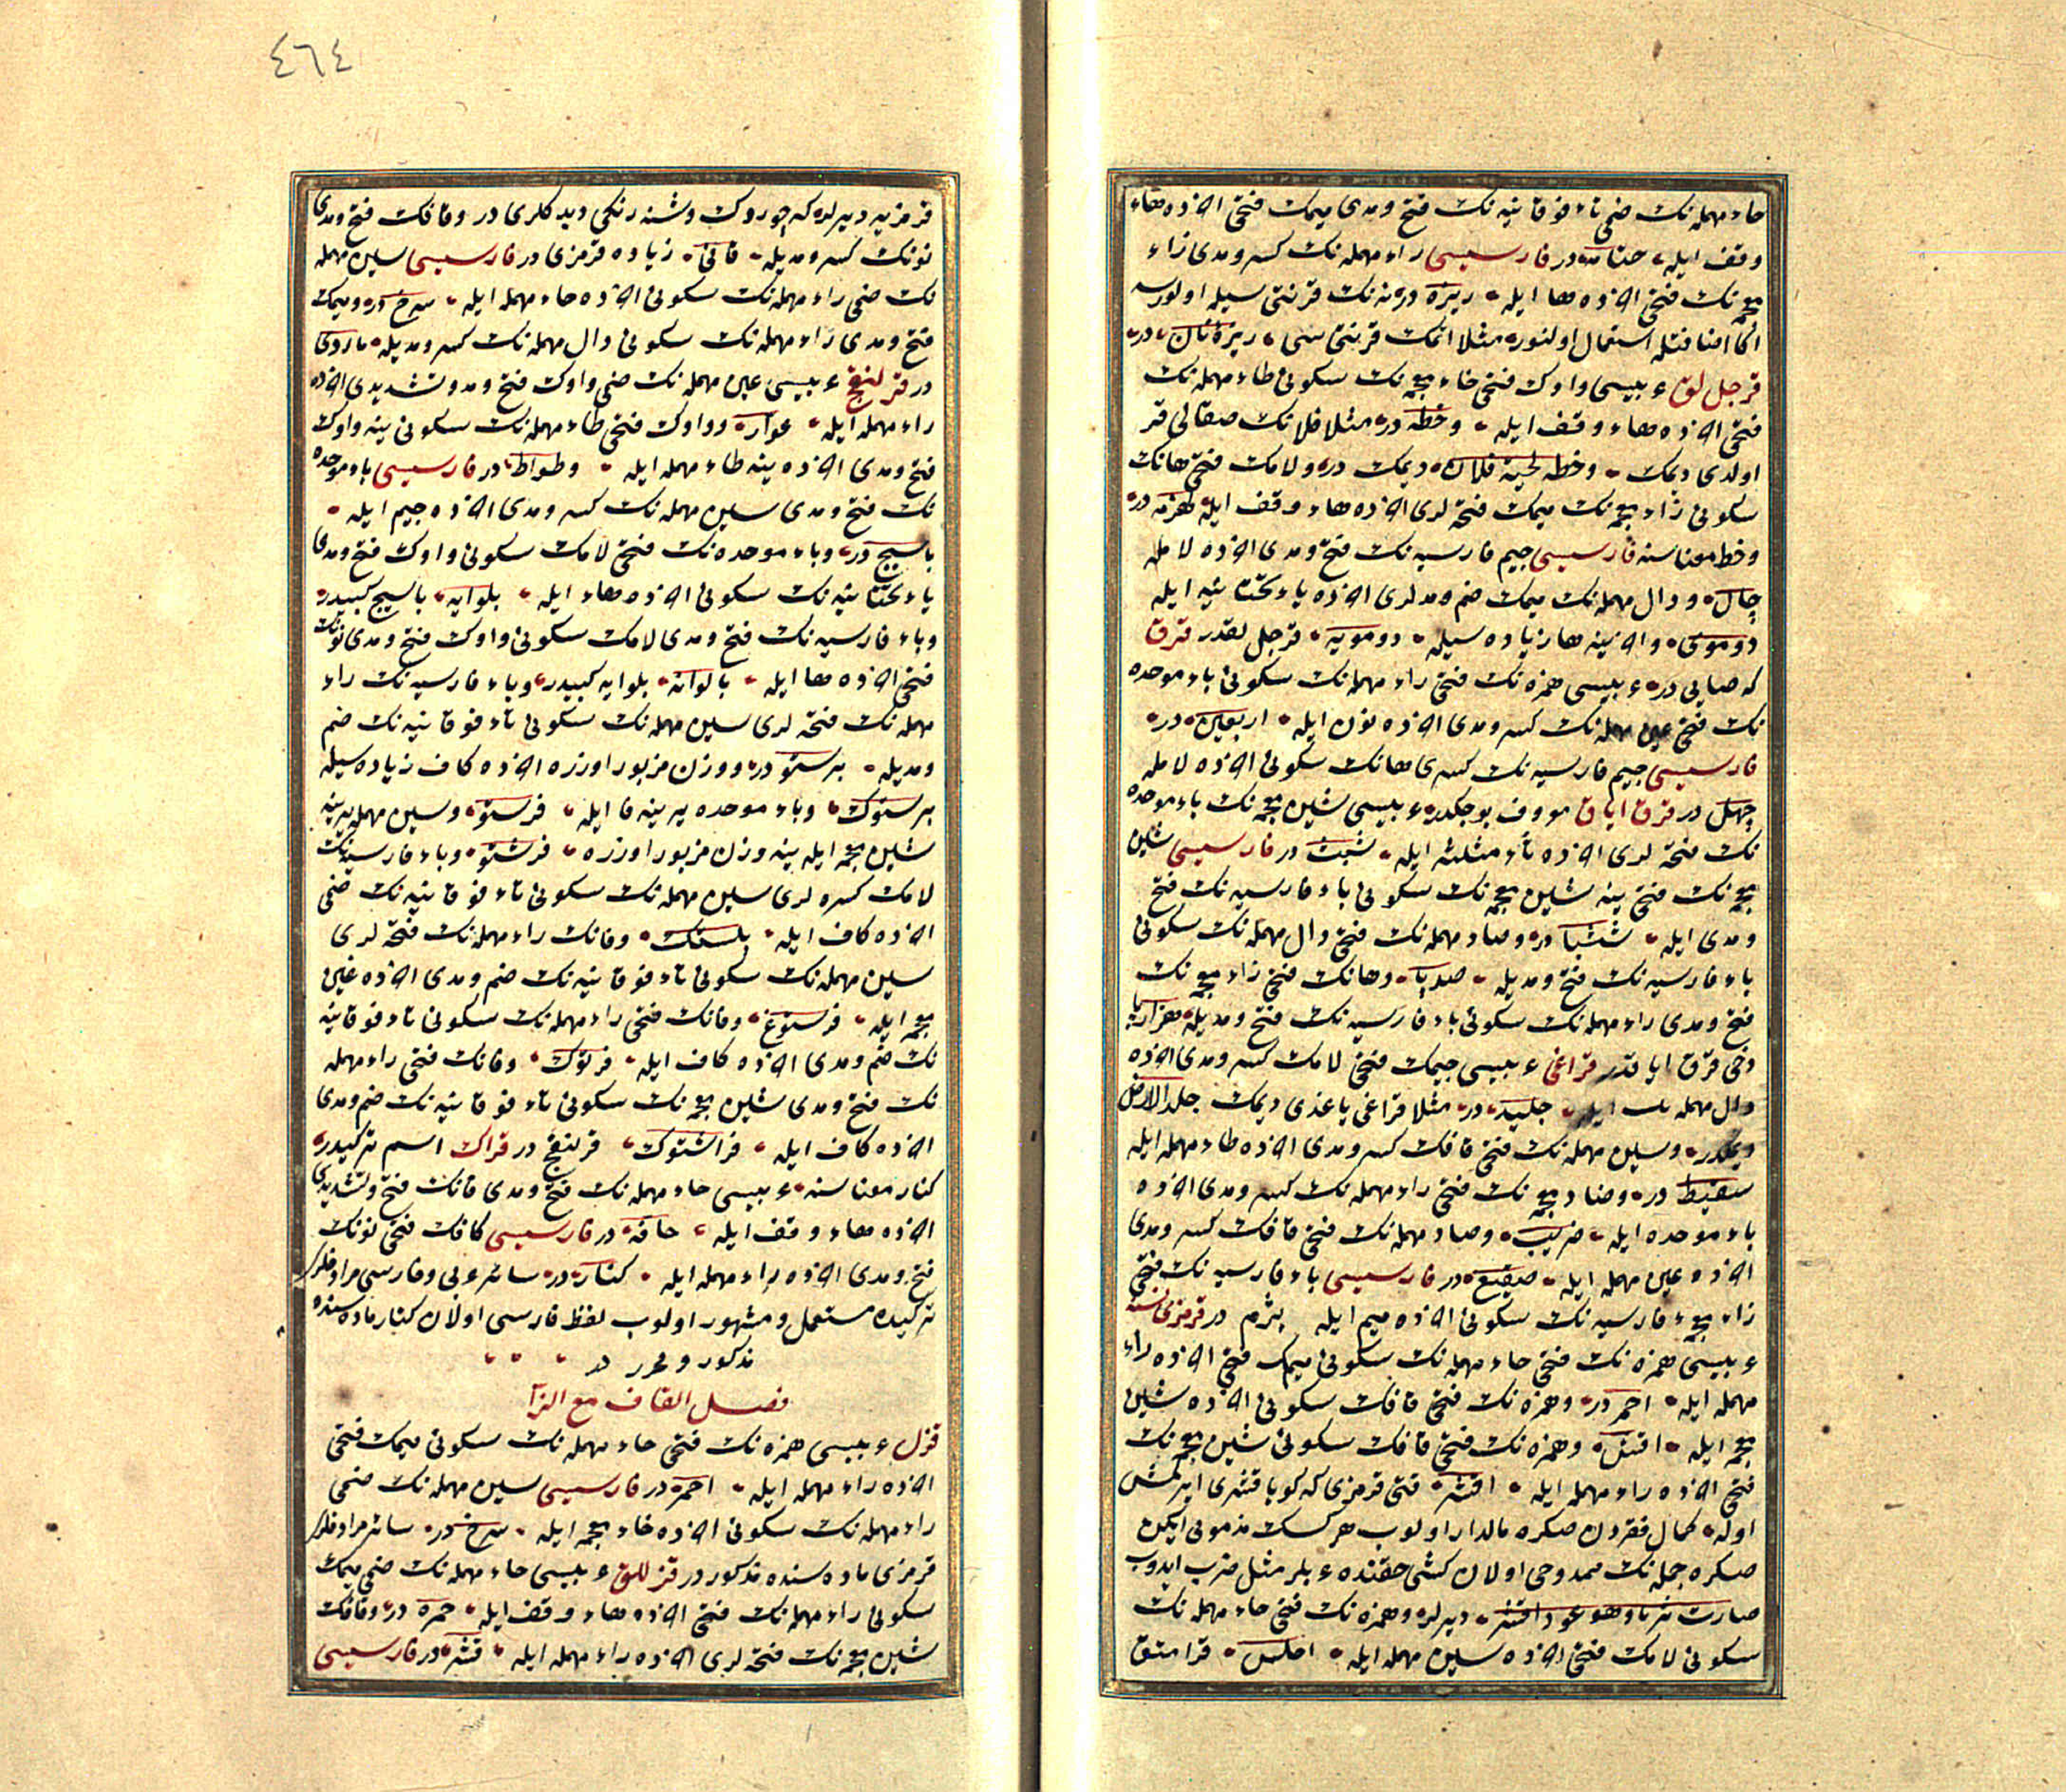 حاء مهمله‌نك ضمى تاء فوقانيه‌نك فتح و مدى ميمك فتحى اخرده هاء
وقف ايله حتامه در فارسيسى راء مهمله‌نك كسر و مدى زاء
معجمه‌نك فتحى اخرده ها ايله ريزه در نه‌نك قرنتى سيله اولورسه
اكا اضافتله استعمال اولنور مثلا اتمك قرنتى سى ريزۀ نان در
قرجل لق عربيسى واوك فتحى خاء معجمه‌نك سكونى طاء مهمله‌نك
فتحى اخرده هاء وقف ايله وخطه در مثلا فلانك صقالى قر
اولدى ديمك وخطه لحية فلان ديمك در ولامك فتحى هانك
سكونى زاء معجمه‌نك ميمك فتحه لرى اخرده هاء وقف ايله لهزمه در
وخط معناسنه فارسيسى جيم فارسيه‌نك فتح و مدى اخرده لامله
چال ودال مهمله‌نك ميمك ضم و مدلرى اخرده ياء تحتانيه ايله
دوموى واخرينه ها زياده سيله دومويه قرجل لقدر قرق
كه صايى در عربيسى همزه‌نك فتحى راء مهمله‌نك سكونى باء موحده
نك فتحى عين مهمله‌نك كسر و مدى اخرده نون ايله اربعين در
فارسيسى جيم فارسيه‌نك كسرى هانك سكونى اخرده لامله
چهل در قرق اياق معروف بوجكدر عربيسى شين معجمه‌نك باء موحده
نك فتحه لرى اخرده ثاء مثلثه ايله شبث در فارسيسى شين
معجمه‌نك فتحى ينه شين معجمه‌نك سكونى باء فارسيه‌نك فتح
و مدى ايله ششپا در وصاد مهمله‌نك فتحى دال مهمله‌نك سكونى
باء فارسيه‌نك فتح و مديله صدپا وهانك فتحى زاء معجمه‌نك
فتح و مدى راء مهمله‌نك سكونى باء فارسيه‌نك فتح و مديله هزارپا
دخى قرق اياقدر قراغى عربيسى جيمك فتحى لامك كسر و مدى اخرده
دال مهمله ايله جليد در مثلا قراغى ياغدى ديمك جلد الارض
ديمكدر وسين مهمله‌نك فتحى قافك كسر و مدى اخرده طاء مهمله ايله
سقيط در وضاد معجمه‌نك فتحى راء مهمله‌نك كسر و مدى اخرده
باء موحده ايله ضريب وصاد مهمله‌نك فتحى قافك كسر و مدى
اخرده عين مهمله ايله صقيع در فارسيسى باء فارسيه‌نك فتحى
زاء معجمۀ فارسيه‌نك سكونى اخرده ميم ايله پژم در قرمزى نسنه
عربيسى همزه‌نك فتحى حاء مهمله‌نك سكونى ميمك فتحى اخرده راء
مهمله ايله احمر در وهمزه‌نك فتحى قافك سكونى اخرده شين
معجمه ايله اقش وهمزه‌نك فتحى قافك سكونى شين معجمه‌نك
فتحى اخرده راء مهمله ايله اقشر قتى قرمزى كه كويا قشرى ايرلمش
اوله كمال فقردن صكره مالدار اولوب هركسك مذمومى ايكن
صكره جمله‌نك ممدوحى اولان كشى حقنده عربلر مثل ضرب ايدوب
صارت ثريا وهو عود اقشر ديرلر وهمزه‌نك فتحى حاء مهمله‌نك
سكونى لامك فتحى اخرده سين مهمله ايله احلس قرامتق
٤٦٤
قرمزيه ديرلر كه چوردك وشنه رنكى ديدكلرى در وقافك فتح و مدى
نونك كسر و مديله قانى زياده قرمزى در فارسيسى سين مهمله
نك ضمى راء مهمله‌نك سكونى اخرده خاء معجمه ايله سرخ در وميمك
فتح و مدى راء مهمله‌نك سكونى دال مهمله‌نك كسر و مديله ماردى
در قرلنقج عربيسى عين مهمله‌نك ضمى واوك فتح و مد و تشديدى اخرده
راء مهمله ايله عوار وواوك فتحى طاء مهمله‌نك سكونى ينه واوك
فتح و مدى اخرده ينه طاء مهمله ايله وطواط در فارسيسى باء موحده
نك فتح و مدى سين مهمله‌نك كسر و مدى اخرده جيم ايله
باسيج در وباء موحده‌نك فتحى لامك سكونى واوك فتح و مدى
ياء تحتانيه‌نك سكونى اخرده هاء ايله بلوايه باسيج كبيدر
وباء فارسيه‌نك فتح و مدى لامك سكونى واوك فتح و مدى نونك
فتحى اخرده ها ايله پالوانه بلوايه كبيدر وباء فارسيه‌نك راء
مهمله‌نك فتحه لرى سين مهمله‌نك سكونى تاء فوقانيه‌نك ضم
و مديله پرستو در ووزن مزبور اوزره اخرده كاف زياده سيله
پرستوك وباء موحده يرينه فا ايله فرستو وسين مهمله يرينه
شين معجمه ايله ينه وزن مزبور اوزره فرشتو وباء فارسيه‌نك
لامك كسره لرى سين مهمله‌نك سكونى تاء فوقانيه‌نك ضمى
اخرده كاف ايله پلستك وفانك راء مهمله‌نك فتحه لرى
سين مهمله‌نك سكونى تاء فوقانيه‌نك ضم و مدى اخرده غين
معجمه ايله فرستوغ وفانك فتحى راء مهمله‌نك سكونى تاء فوقانيه
نك ضم و مدى اخرده كاف ايله فرتوك وفانك فتحى راء مهمله
نك فتح و مدى شين معجمه‌نك سكونى تاء فوقانيه‌نك ضم و مدى
اخرده كاف ايله فراشتوك قرلنقج در قراك اسم تركيدر
كنار معناسنه عربيسى حاء مهمله‌نك فتح و مدى فانك فتح و تشديدى
اخرده هاء وقف ايله حافه در فارسيسى كافك فتحى نونك
فتح و مدى اخرده راء مهمله ايله كنار در سائر عربى و فارسى مرادفلرى
تركيده مستعمل و مشهور اولوب لفظ فارسى اولان كنار ماده سنده
مذكور و محرر در
فصل القاف مع الزآ
قزل عربيسى همزه‌نك فتحى حاء مهمله‌نك سكونى ميمك فتحى
اخرده راء مهمله ايله احمر در فارسيسى سين مهمله‌نك ضمى
راء مهمله‌نك سكونى اخرده خاء معجمه ايله سرخ در سائر مرادفلرى
قرمزى ماده سنده مذكور در قزللق عربيسى حاء مهمله‌نك ضمى ميمك
سكونى راء مهمله‌نك فتحى اخرده هاء وقف ايله حمره در وقافك
شين معجمه‌نك فتحه لرى اخرده راء مهمله ايله قشر در فارسيسى